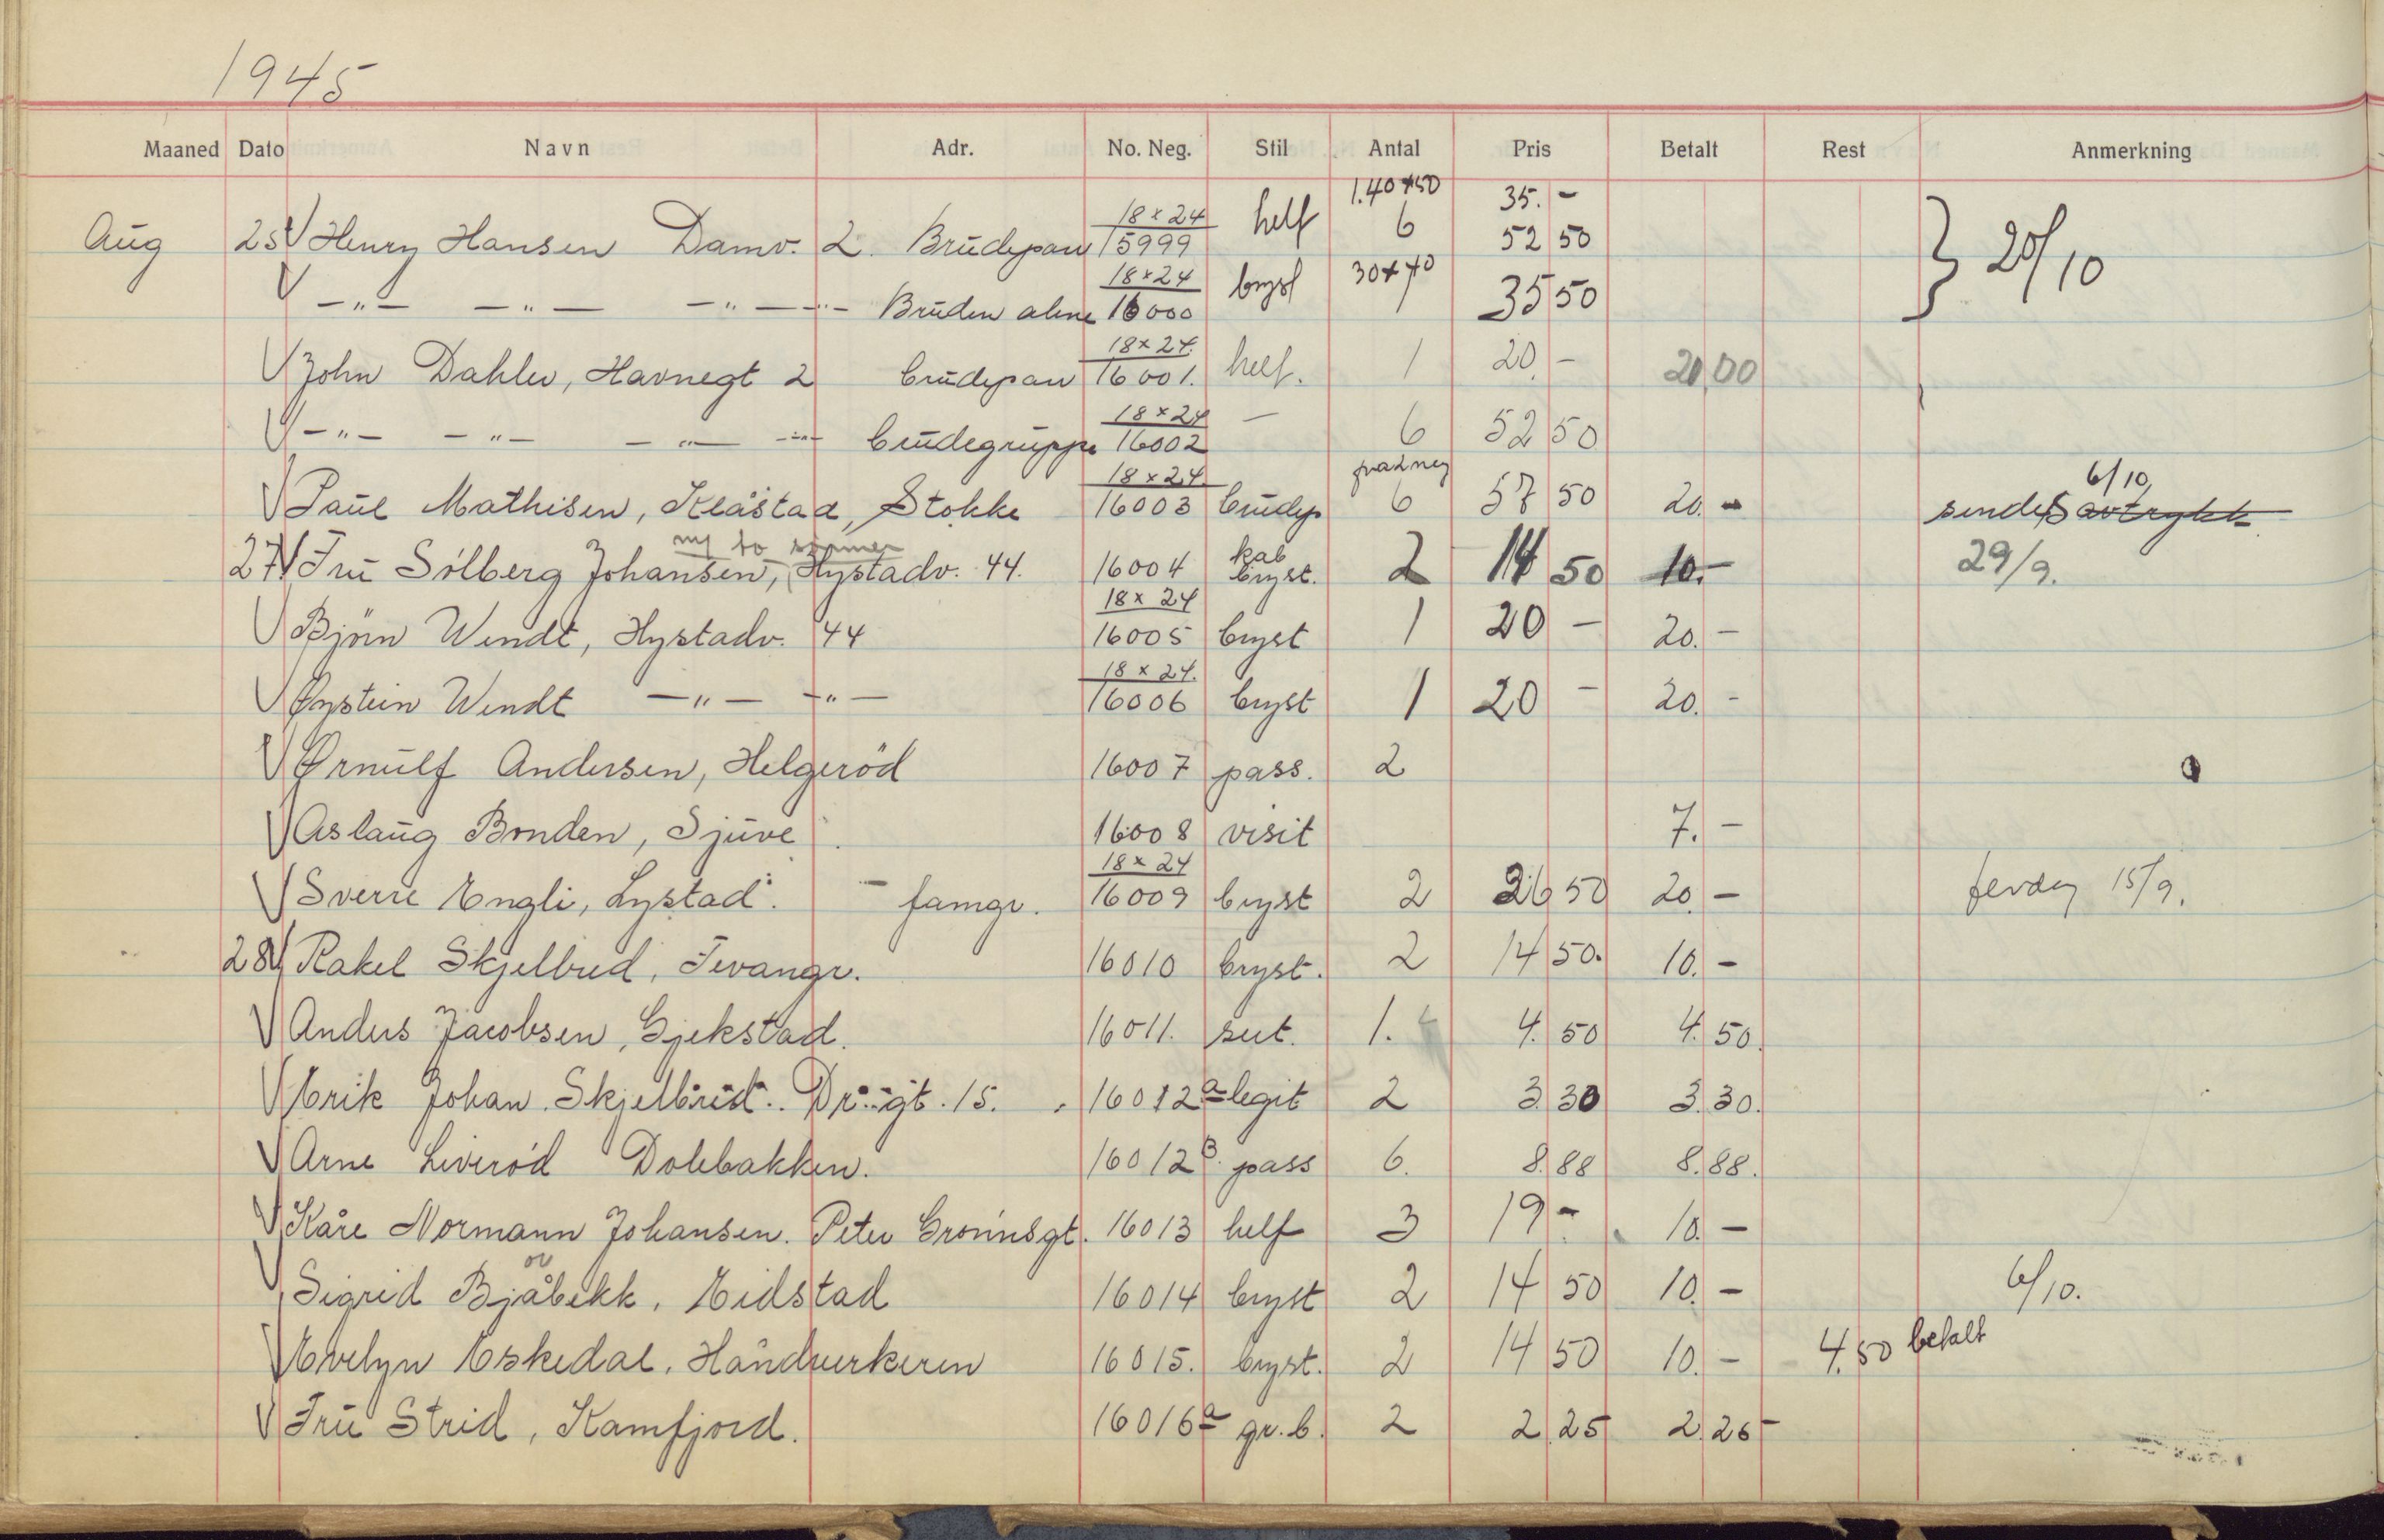 1945
Maaned Dato Navn Adr. No. Neg. Stil Antal Pris Betalt Rest Anmerkning
1.40+50 35.-
Aug 25 Henry Hansen Damv. 2. Brudepar 18x24 15999 helf 6 52 50 } 20/10
-"- -"- -"- -"- Bruden alene 18x24 16000 bryst 30+40 1 35 50
John Dahler, Havnegt 2 brudepar 18x24 16001. helf. 1 20.- 20,00
-"- -"- -"- -"- brudegruppe 18x24 16002 - 6 52 50
Paul Mathisen, Klåstad, Stokke 18x24 16003 brudep 6 57 50 20.- sendes avtrykk 6/10
ny to rammer
27 Fru Sólberg Johansen, Hystadv. 44. 16004 kab bryst. 2 14 50 10.- 29/9.
Björn Wendt, Hystadv. 44 18x24 16005 bryst 1 20 - 20.-
Øystein Wendt -"- -"- 18x24. 16006 bryst 1 20 - 20.-
Ørnulf Andersen, Helgeröd 16007 pass. 2
Aslaug Bonden, Sjuve 16008 visit 7.-
Sverre Engli, Lystad. - famgr. 18x24 16009 bryst 2 26 50 20.- ferdig 15/9.
28 Rakel Skjelbred, Tevangr. 16010 bryst. 2 14 50. 10.-
Anders Jacobsen, Gjekstad. 16011. sut. 1. 4. 50 4. 50.
Erik Johan Skjelbred. Dr..gt. 15. 16012a legit 2 3. 30 3. 30.
Arne Liveröd Dolebakken. 16012B. pass 6. 8.88 8.88.
Kåre Normann Johansen. Peter Grönnsgt. 16013 helf 3 19 - 10.-
ø
Sigrid Bjåbekk, Eidstad 16014 bryst 2 14 50 10.- 6/10.
Evelyn Eskedal, Håndverkeren 16015. bryst. 2 14 50 10.- 4.50 betalt
Fru Strid, Kamfjord. 16016a gr.b. 2 2 25 2. 25